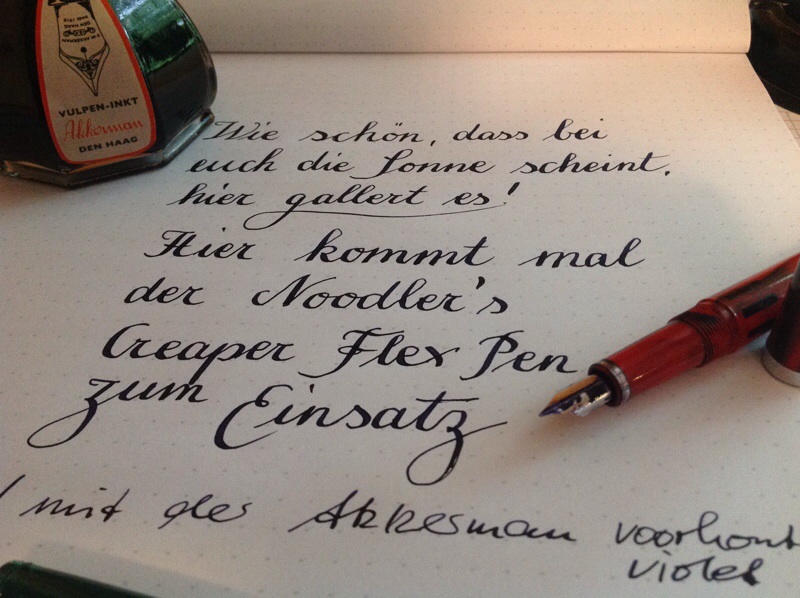 VULPEN-INKT
Akkerman
DEN HAAG
Wie schön, dass bei
euch die Sonne scheint,
hier gallert es!
Hier kommt mal
der Noodler's
Creaper Flex Pen
zum Einsatz
mit der Akkerman voorhout
violet